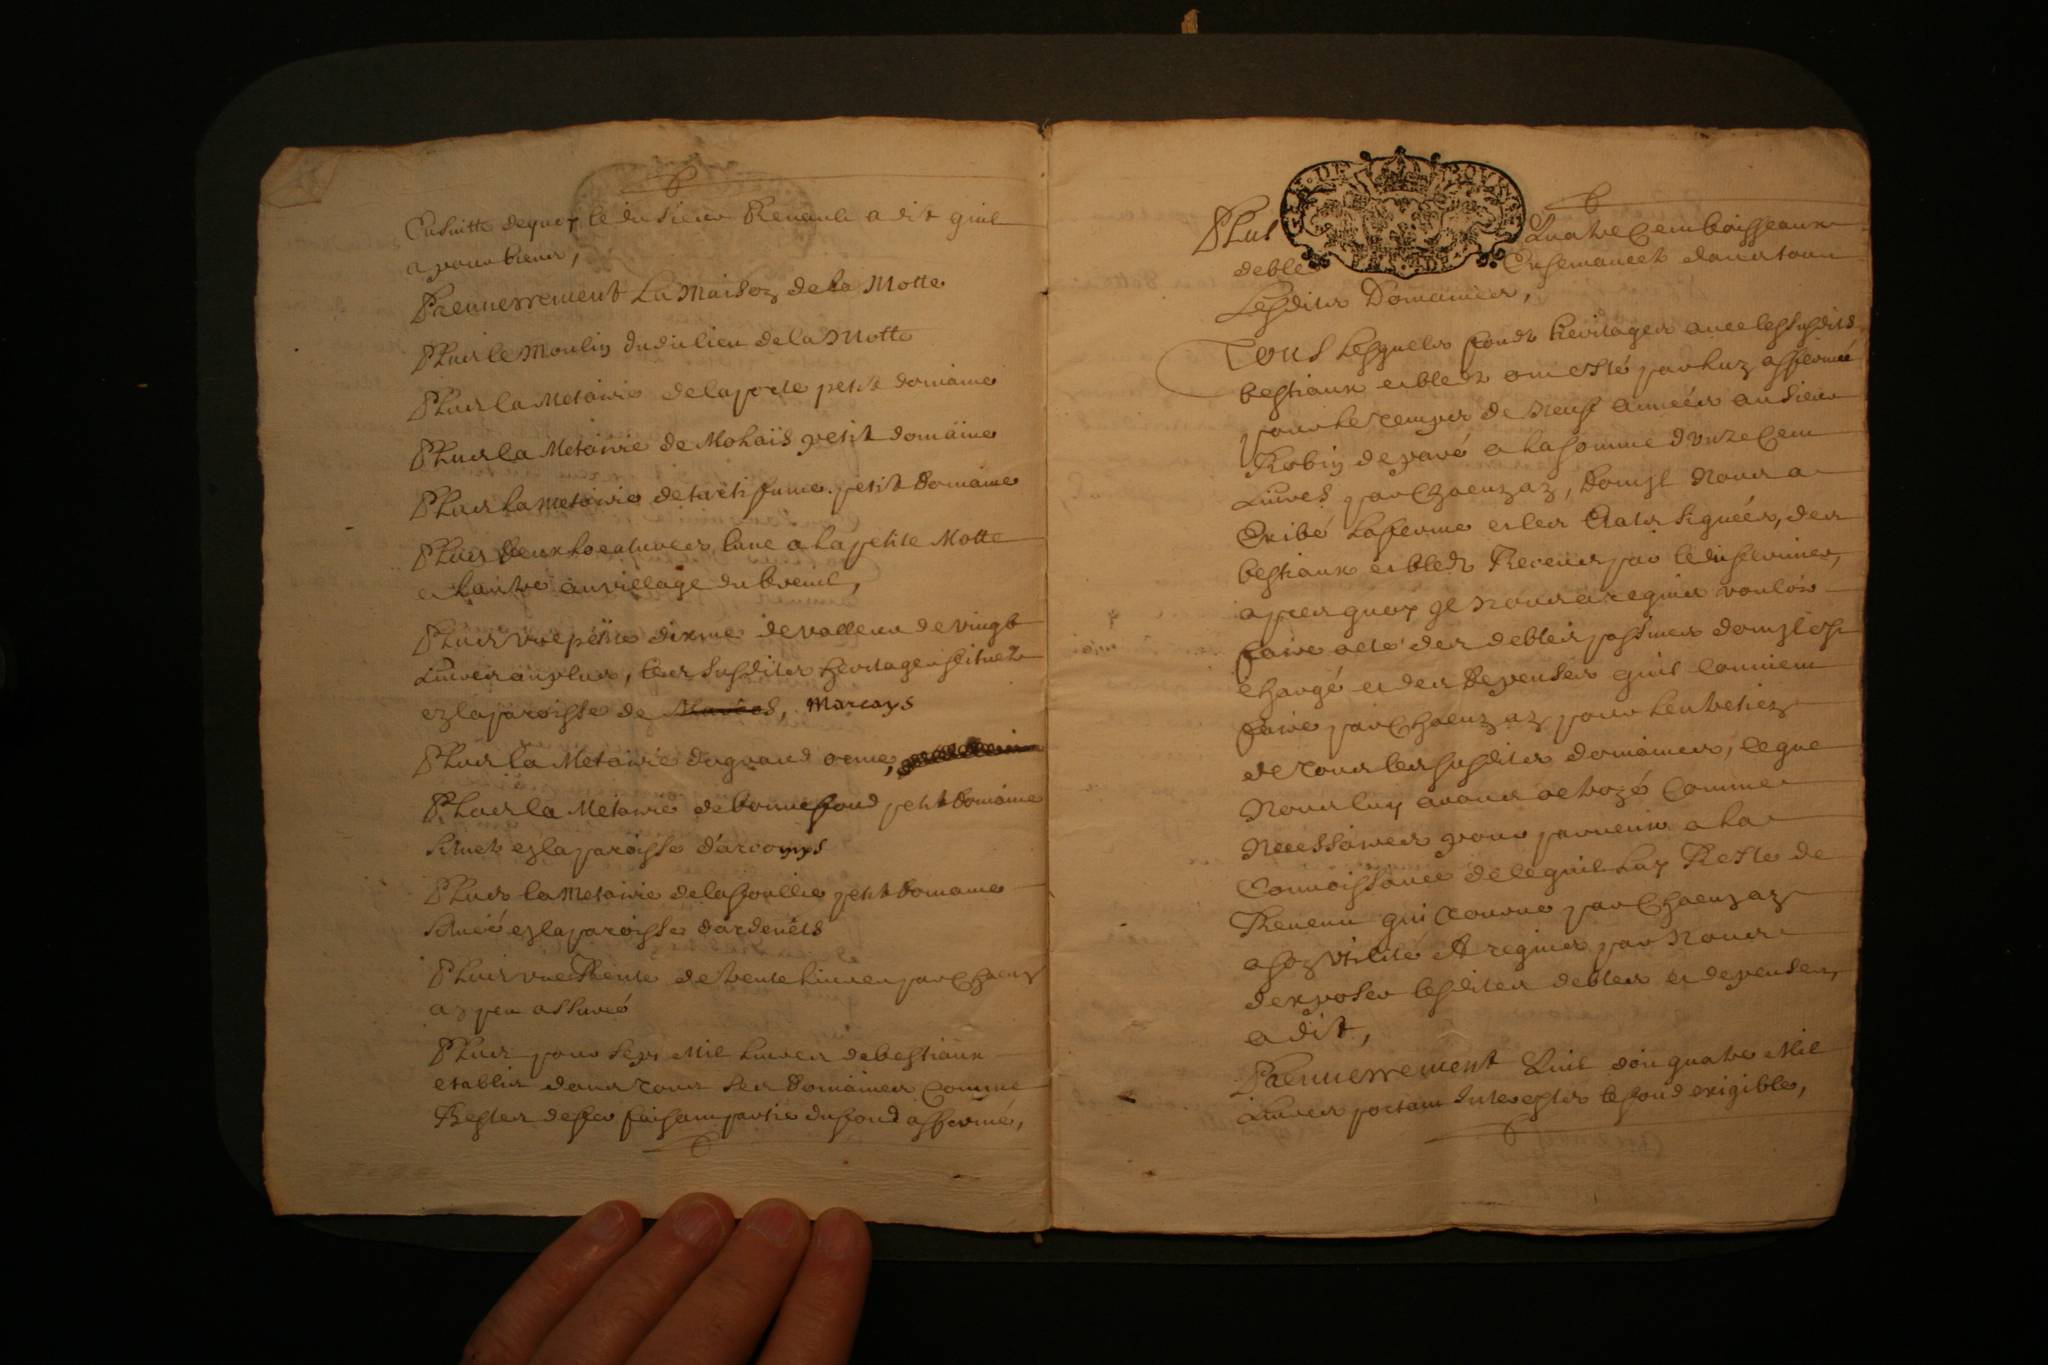 Ensuitte dequoy le dit sieur Renault a dit quil
a pour biens,
Premierrement La Maison de la Motte
Plus le Moulin dudit lieu de la Motte
Plus la Metairie de la porte petit domaine
Plus la Metairie de Mohaïs petit domaine
Plus la Metairie de tartifume petit domaine
Plus deux Locatures lune a la petite Motte
et lautre au village du breuil,
Plus une petitte dixme de valleur de vingt
Livres au plus, les susdits heritages situez
en la paroisse de Marcays
Plus la Metairie du grand orme,
Plus la Metairie de bonnefond petit domaine
situez en la paroisse d'arcomps
Plus la Metairie de petit domaine
situé en la paroisse d'ardenais
Plus une Rente de trente livres par Chacun
an peu assuré
Plus pour sept Mil livres de bestiaux
etablis dans tous les Domaines Comme
Bestes de fer faisant partie du fond affermé,
Plus Quatre Cent boisseaux
de bled Ensemancez dans tous
Lesdits Domaines,
Tous Lesquels fonds heritages avec les susdits
bestiaux et bleds ont esté par luy affermé
pour le temps de neuf années au sieur
Robin de pavé a la somme d'unze Cent
Livres par Chacun an, dont il Nous a
Exibé la ferme et les Etats signées, des
bestiaux et bleds Receus par le dit fermier,
apres quoy il Nous a requis vouloir
faire acte des debtes passives dont il est
chargé et des depenses quil convient
faire par Chacun an pour lentretien
de tous les susdits domaines, ce que
Nous luy avons octroyé Comme
Necessaires pour parvenir a la
Connoissance de ce quil luy Reste de
Revenu qui tourne par Chacun an
a son utilité Et requis par Nous
d'exposer lesdites debtes et depenses,
a dit,
Premierrement Quil doit quatre Mil
Livres portant Interests le fond exigible,